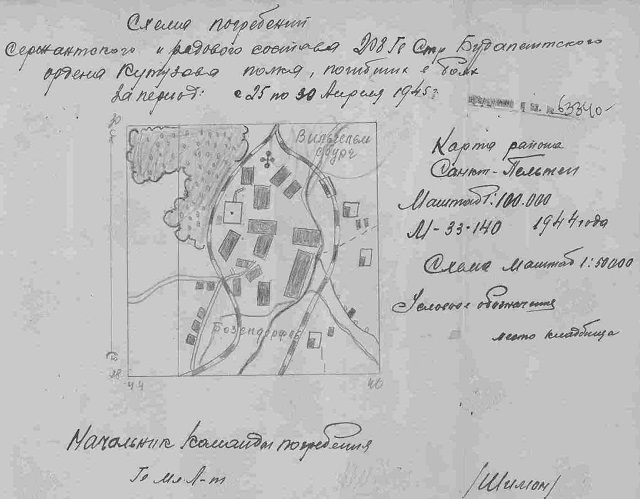 Схема погребений
Сержантского и рядового состава 208 Гв Стр Будапештского
ордена Кутузова полка, погибших в боях
за период: с 25 по 30 Апреля 1945г.
63340
Карта района
Санкт-Пельтен
Масштаб 1:100.000
М-33-140 1944 года
Схема Масштаб 1:50000
Условное обозначение
место кладбища
20
Вильгельм
бург
18
44
46
Начальник Команды погребения
Гв Мл Л-т
/Шимон/